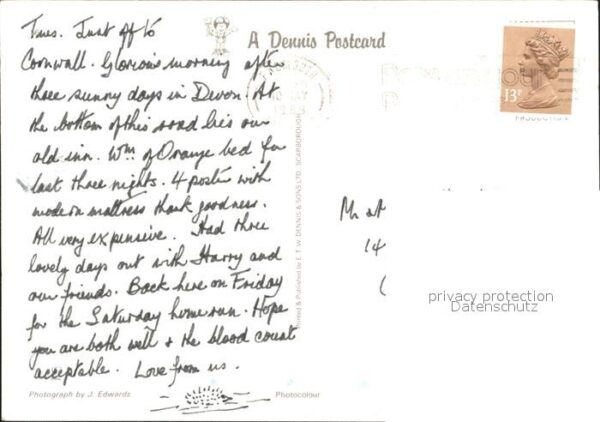 Tues. Just off to
Cornwall. Glorious morning after
three sunny days in Devon. At
the bottom of this road lies our
old inn. Wm of Orange bed for
last three nights. 4 poster with
modern mattress thank goodness.
All very expensive. Had three
lovely days out with Harry and
our friends. Back here on Friday
for the Saturday home run. Hope
you are both well & the blood count
acceptable. Love from us.
Photograph by J. Edwards
Photocolour
A Dennis Postcard
Printed & Published by E. T. W. DENNIS & SONS LTD. SCARBOROUGH
13P
14
privacy protection
Datenschutz